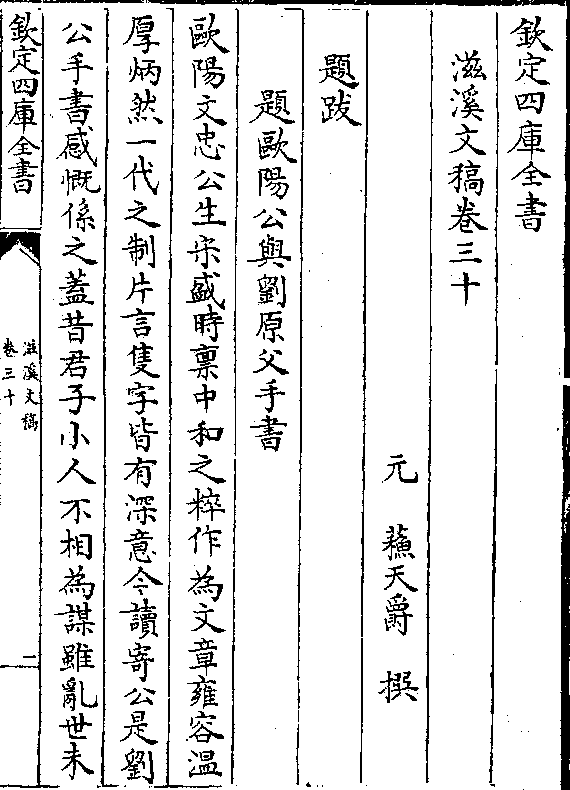 欽定四庫全書
滋溪文稿卷三十
元 蘇天爵 撰
題跋
題歐陽公與劉原父手書
歐陽文忠公生宋盛時禀中和之粹作為文章雍容温
厚炳然一代之制片言隻字皆有深意今讀寄公是劉
公手書感慨係之蓋昔君子小人不相為謀雖亂世未
欽定四庫全書
滋溪文稿
卷三十
一